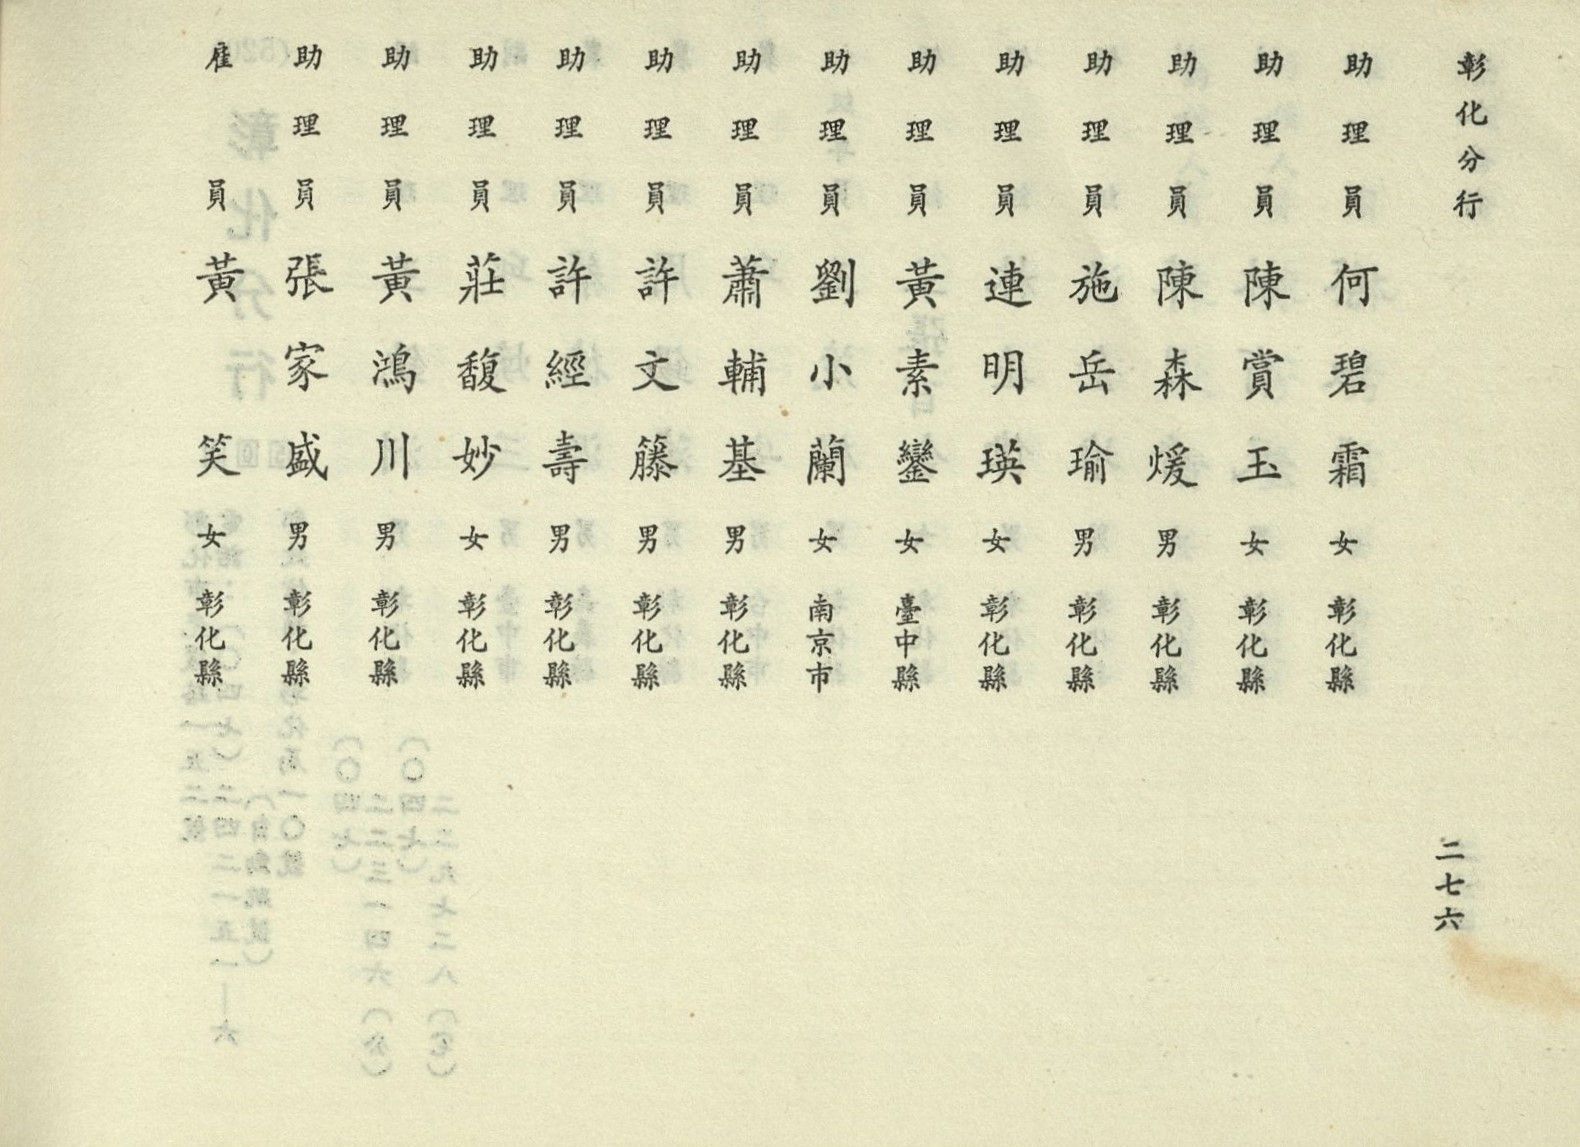 彰化分行
助理員 何碧霜 女 彰化縣
助理員 陳賞玉 女 彰化縣
助理員 陳森煖 男 彰化縣
助理員 施岳瑜 男 彰化縣
助理員 連明瑛 女 彰化縣
助理員 黃素鑾 女 臺中縣
助理員 劉小蘭 女 南京市
助理員 蕭輔基 男 彰化縣
助理員 許文籐 男 彰化縣
助理員 許經壽 男 彰化縣
助理員 莊馥妙 女 彰化縣
助理員 黃鴻川 男 彰化縣
助理員 張家盛 男 彰化縣
雇員 黃笑 女 彰化縣
二七六